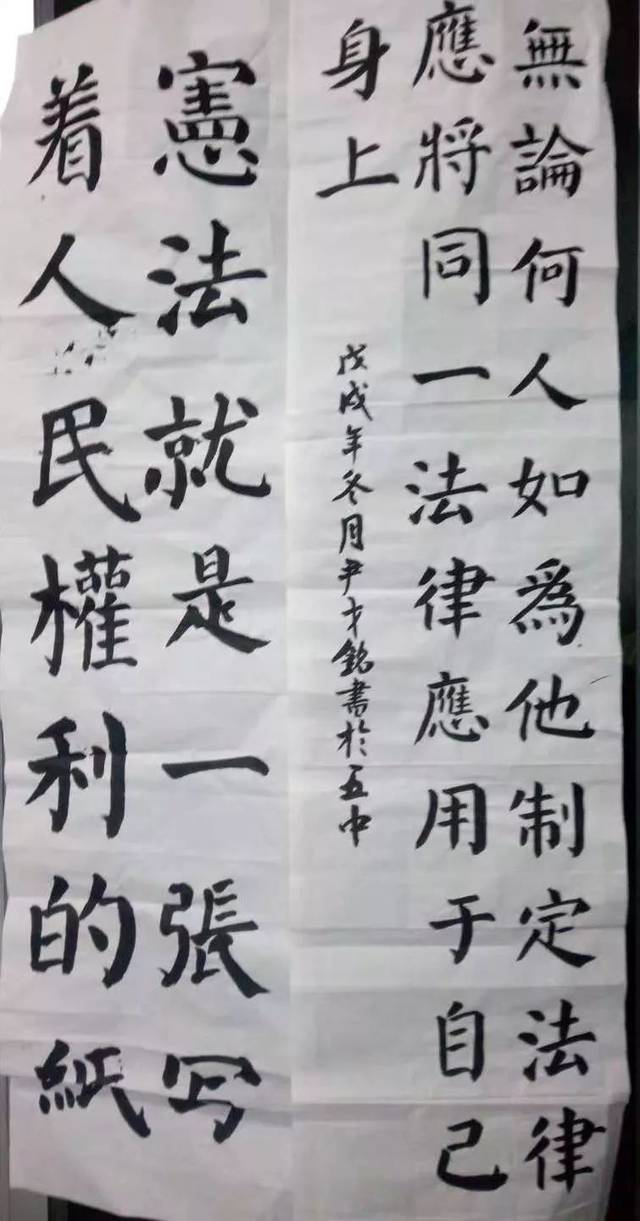 無論何人如為他制定法律
應將同一法律應用于自己
身上
戊戌年冬月尹才銘書於五中
憲法就是一張写
着人民權利的紙